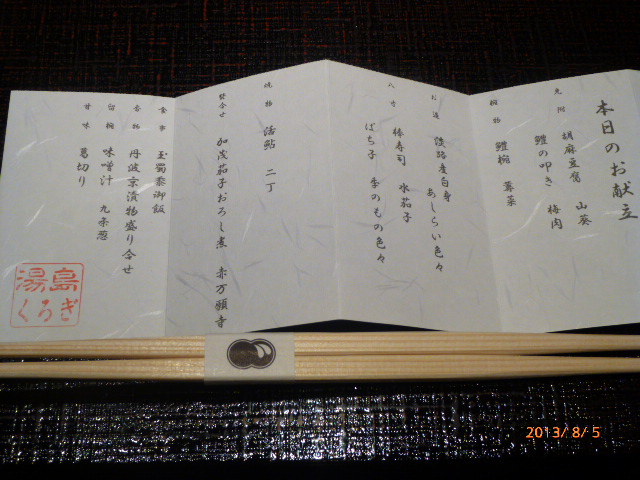 本日のお献立
先附
胡麻豆腐 山葵
鱧の叩き 梅肉
椀物
鱧椀 蓴菜
お造
淡路産白身
あしらい色々
八寸
棒寿司 水茄子
ばち子 季のもの色々
焼物
活鮎 二丁
替合せ
加茂茄子おろし煮 赤万願寺
食事
玉蜀黍御飯
香物
丹波京漬物盛り合せ
留椀
味噌汁 九条葱
甘味
葛切り
湯島
くろぎ
2013/ 8/ 5